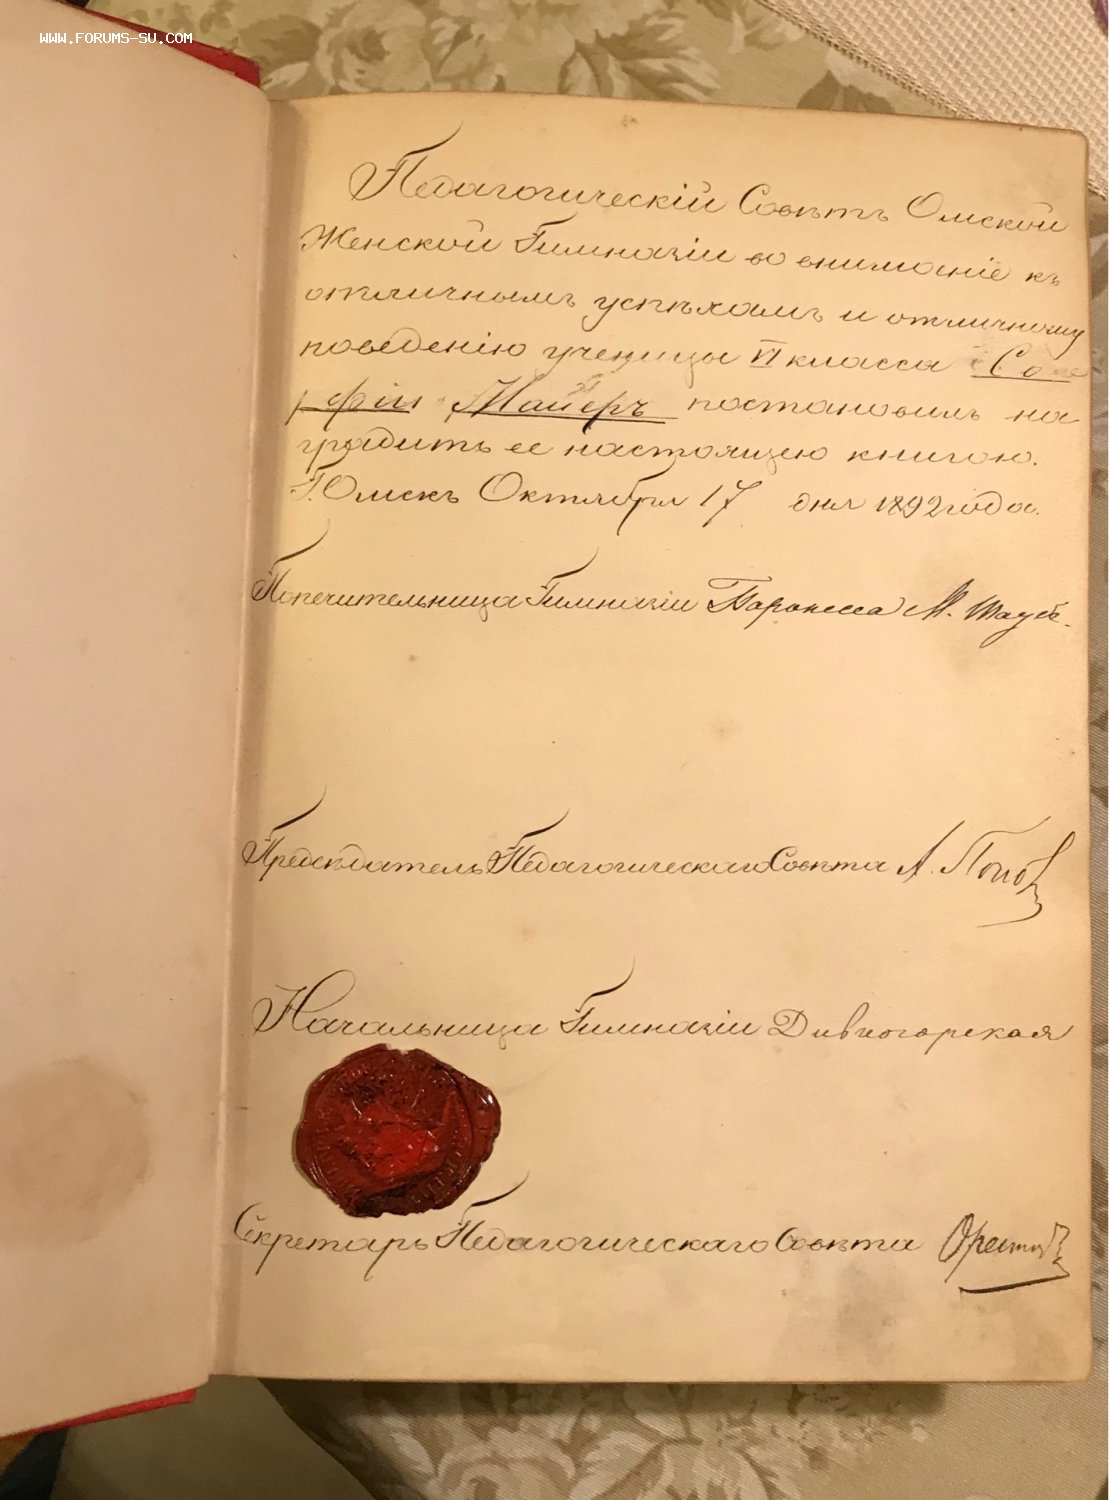 WWW.FORUMS-SU.COM
Педагогическій Совѣтъ Омской
Женской Гимназіи во вниманіе къ
отличнымъ успѣхамъ и отличному
поведенію ученицы VI класса Со
фіи Майеръ постановилъ на
градить ее настоящею книгою.
Г. Омскъ Октября 17 дня 1892 года.
Попечительница Гимназіи Баронесса М. Таубе.
Предсѣдатель Педагогическаго Совѣта А. Попов
Начальница Гимназіи Дивногорская
Секретарь Педагогическаго Совѣта